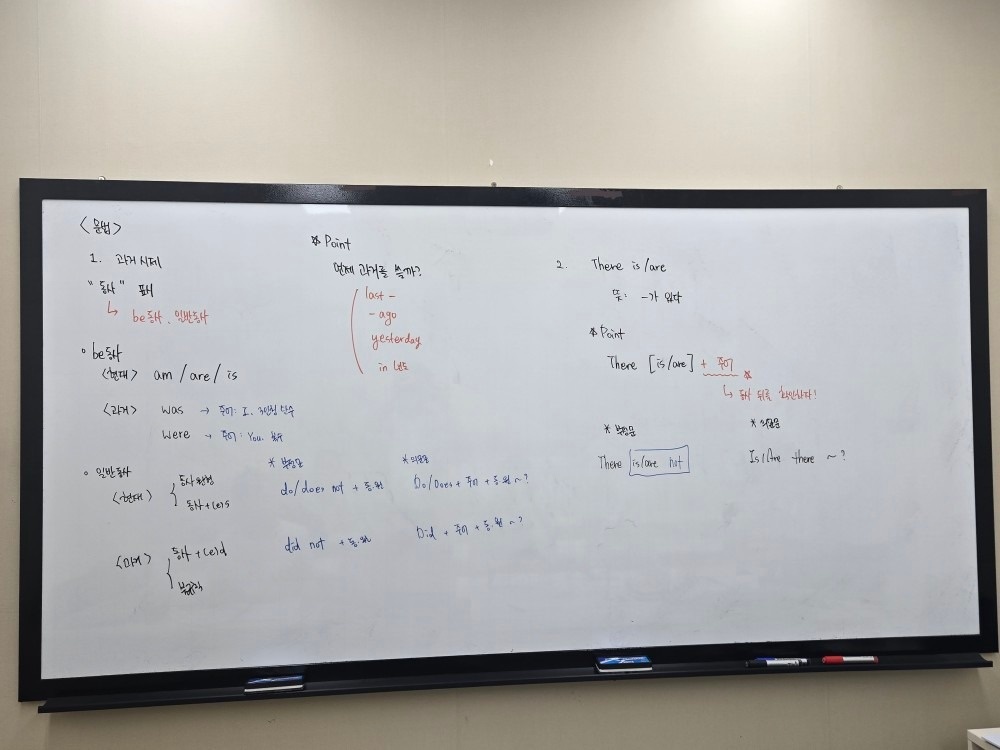 <문법>
1. 과거시제
"동사" 표시
↳ be동사, 일반동사
☆ Point
언제 과거를 쓸까?
last -
- ago
yesterday
in 년도
° be동사
<현대> am / are / is
<과거> was → 주어: I, 3인칭 단수
were → 주어: You, 복수
° 일반동사
* 부정문
* 의문문
<현대> 동사원형
동사+(e)s
do/does not + 동.원
Do/Does + 주어 + 동.원 ~?
<과거> 동사+(e)d
불규칙
did not + 동.원
Did + 주어 + 동.원 ~?
2. There is/are
뜻: -가 있다
☆ Point
There [is/are] + 주어 ☆
↳ 동사 뒤를 확인하자!
* 부정문
There is/are not
* 의문문
Is/Are there ~?